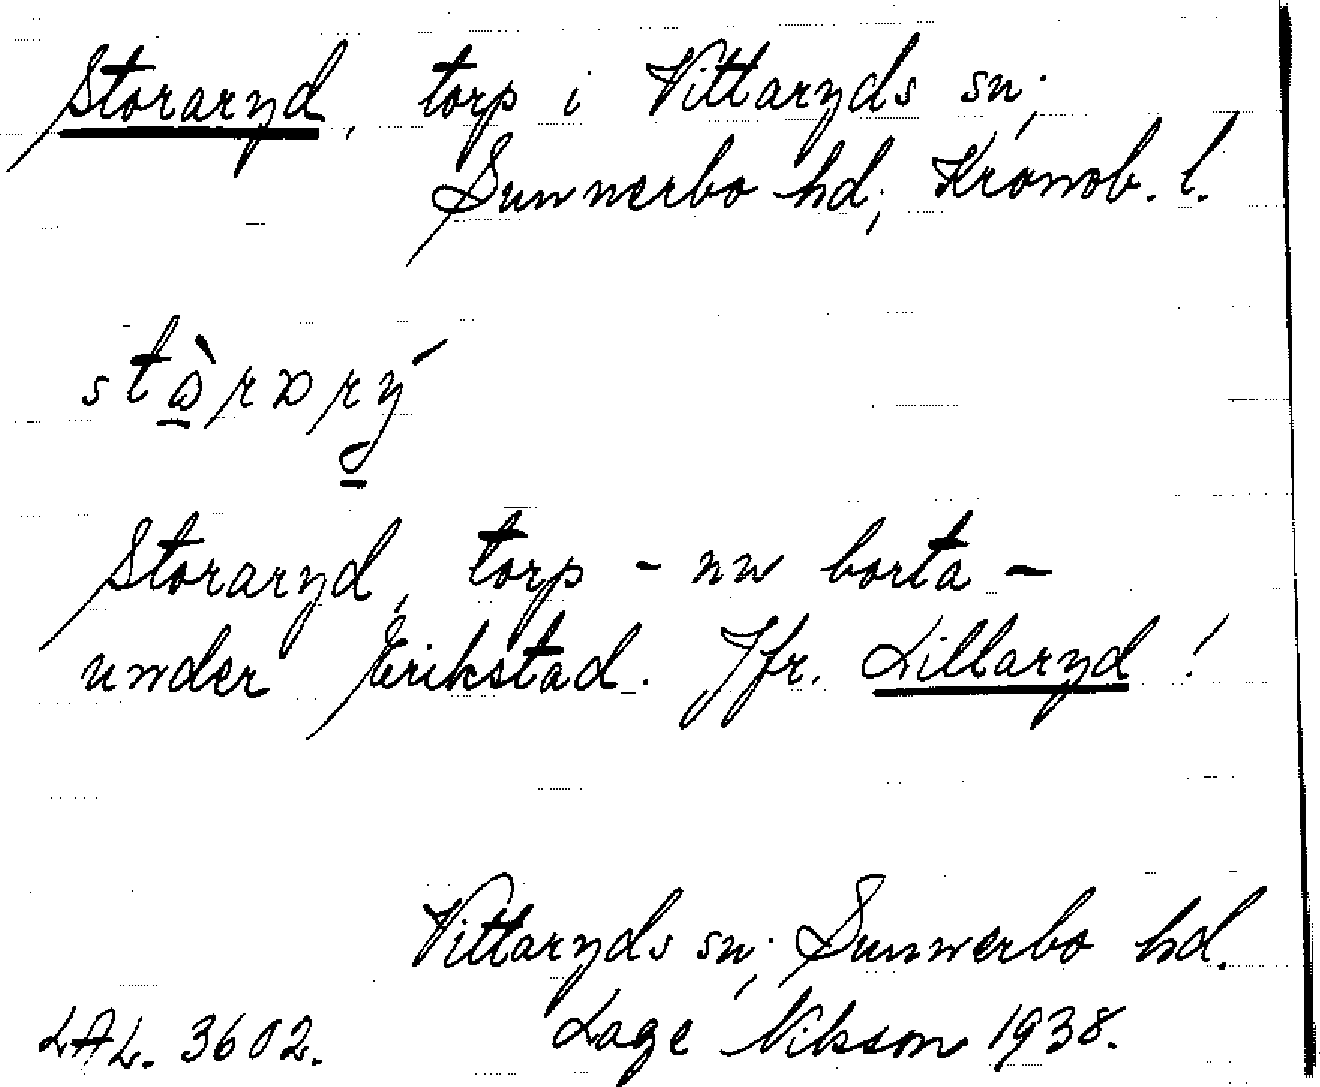 Storaryd, torp i Vittaryds sn;
Sunnerbo hd; Kronob. l.
Storaryd, torp - nu borta -
under Erikstad. Jfr. Lillaryd !
Vittaryds sn; Sunnerbo hd.
LAL. 3602. Lage Nilsson 1938.